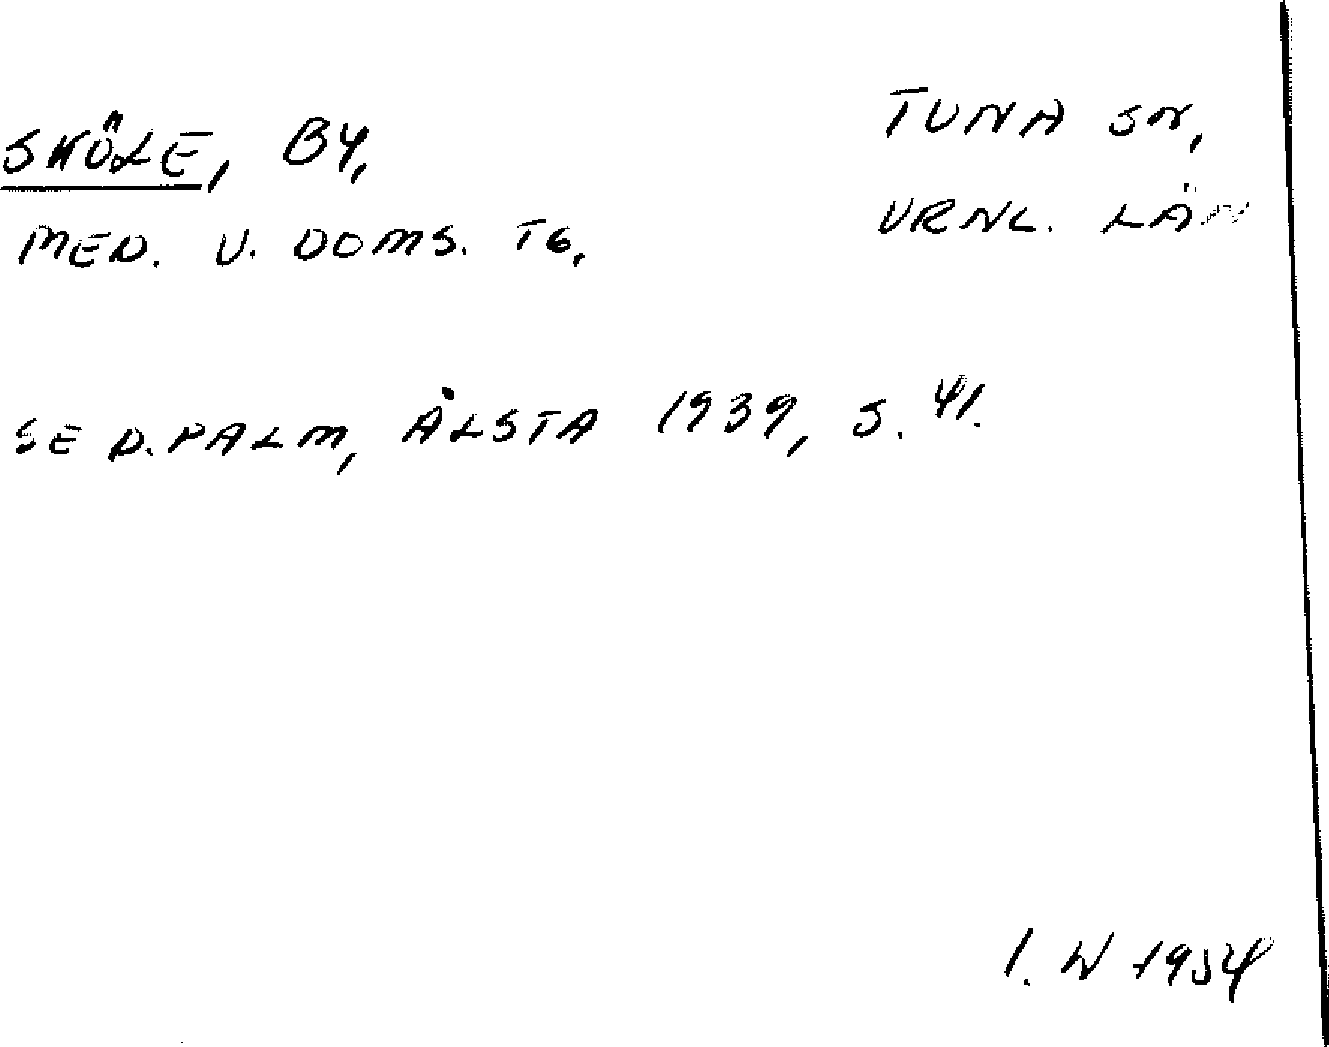 SKÖLE, BY,
TUNA SN,
MED. V. DOMS. TG,
VRNL. LÄN
SE D. PALM, ÅLSTA 1939, S. 41.
I. W 1954